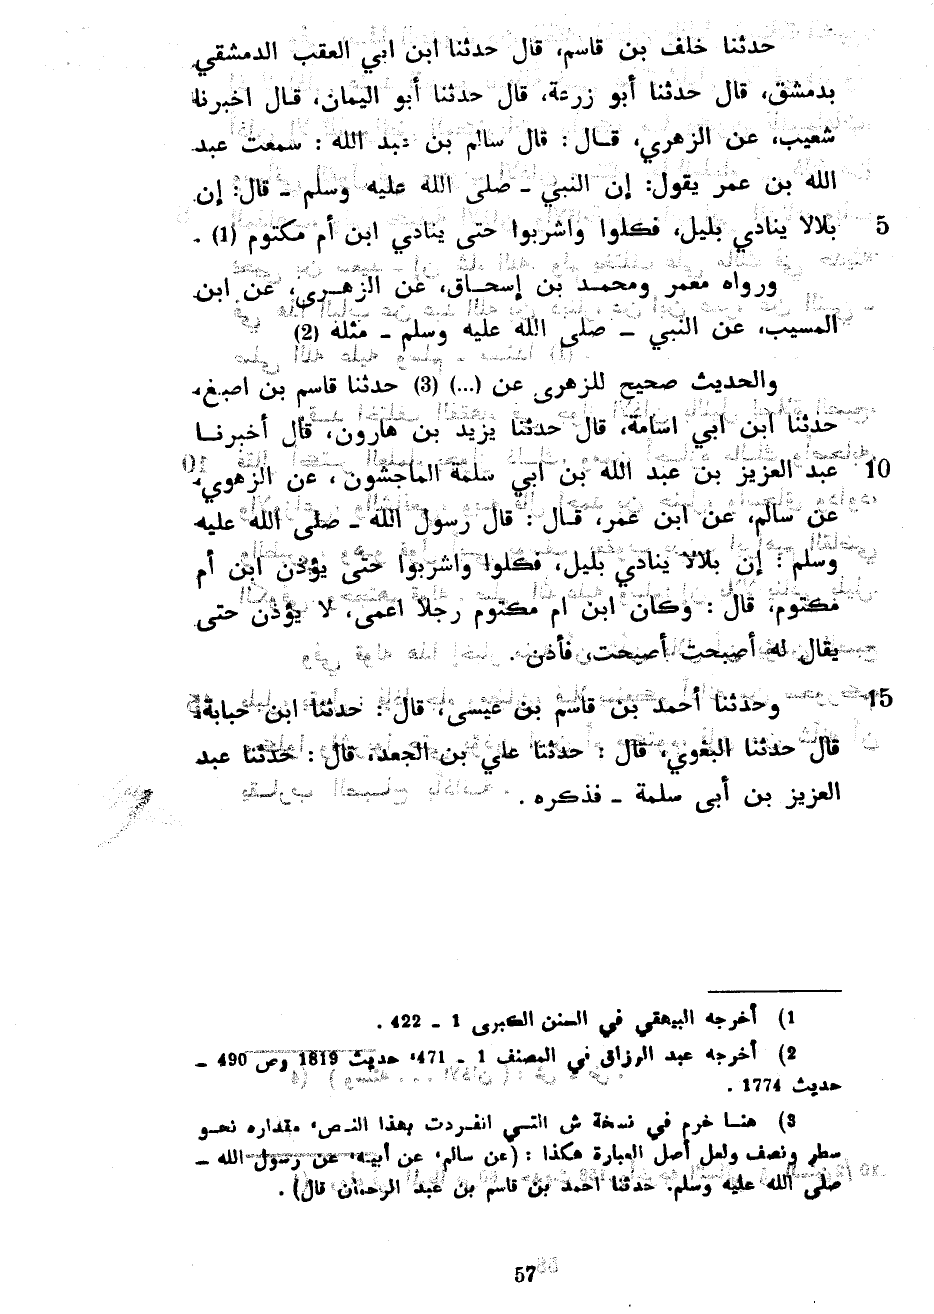 حدثنا خلف بن قاسم، قال حدثنا ابن ابي العقب الدمشقي
بدمشق، قال حدثنا أبو زرعة، قال حدثنا أبو اليمان، قال اخبرنا
شعيب، عن الزهري، قال : قال سالم بن عبد الله : سمعت عبد
الله بن عمر يقول: إن النبي ـ صلى الله عليه وسلم ـ قال: إن
5 بلالا ينادي بليل، فكلوا واشربوا حتى ينادي ابن أم مكتوم (1) .
ورواه معمر ومحمد بن إسحاق، عن الزهرى، عن ابن
المسيب، عن النبي ـ صلى الله عليه وسلم ـ مثله (2)
والحديث صحيح للزهرى عن (...) (3) حدثنا قاسم بن اصبغ،
حدثنا ابن ابي اسامة، قال حدثنا يزيد بن هارون، قال أخبرنا
10 عبد العزيز بن عبد الله بن ابي سلمة الماجشون، عن الزهوي،
عن سالم، عن ابن عمر، قال : قال رسول الله ـ صلى الله عليه
وسلم : إن بلالا ينادي بليل، فكلوا واشربوا حتى يؤذن ابن أم
مكتوم، قال : وكان ابن ام مكتوم رجلا اعمى، لا يؤذن حتى
يقال له أصبحت أصبحت، فأذن .
15 وحدثنا أحمد بن قاسم بن عيسى، قال : حدثنا ابن حبابة،
قال حدثنا البغوي، قال : حدثنا علي بن الجعد، قال : حدثنا عبد
العزيز بن أبى سلمة ـ فذكره .
1) أخرجه البيهقي في السنن الكبرى 1 ـ 422 .
2) أخرجه عبد الرزاق في المصنف 1 ـ 471، حديث 1819 وص 490 ـ
حديث 1774 .
3) هنا خرم في نسخة ش التي انفردت بهذا النص، مقداره نحو
سطر ونصف ولعل أصل العبارة هكذا : (عن سالم، عن أبيه، عن رسول الله ـ
صلى الله عليه وسلم. حدثنا احمد بن قاسم بن عبد الرحمان قال) .
57